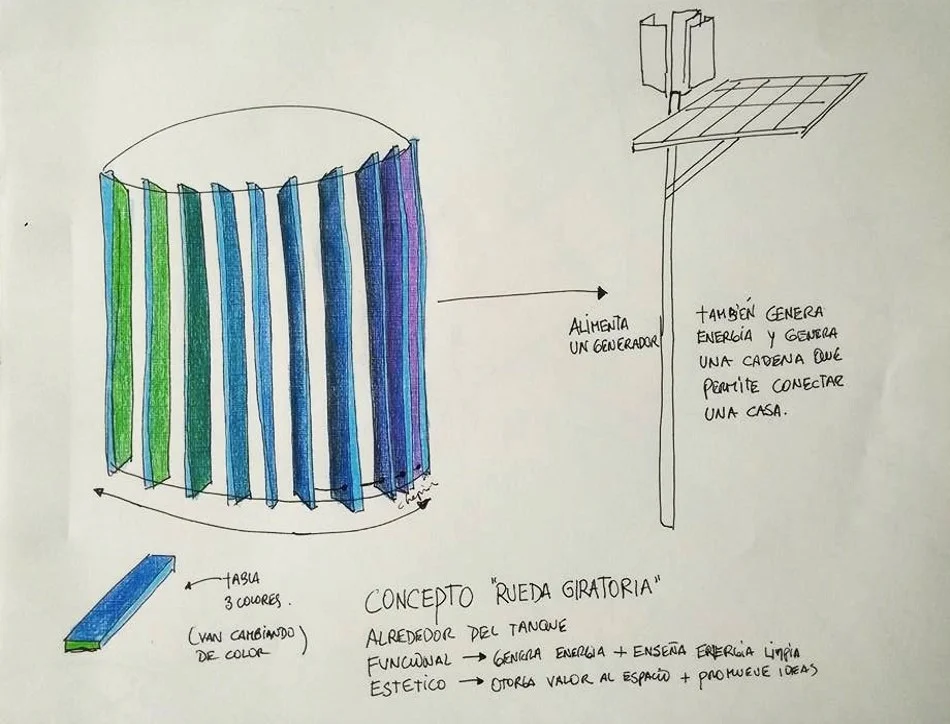 ALIMENTA
UN GENERADOR
TAMBIÉN GENERA
ENERGÍA Y GENERA
UNA CADENA QUE
PERMITE CONECTAR
UNA CASA.
TABLA
3 COLORES.
(VAN CAMBIANDO)
DE COLOR
CONCEPTO "RUEDA GIRATORIA"
ALREDEDOR DEL TANQUE
FUNCIONAL → GENERA ENERGÍA + ENSEÑA ENERGIA LIMPIA
ESTETICO → OTORGA VALOR AL ESPACIO + PROMUEVE IDEAS